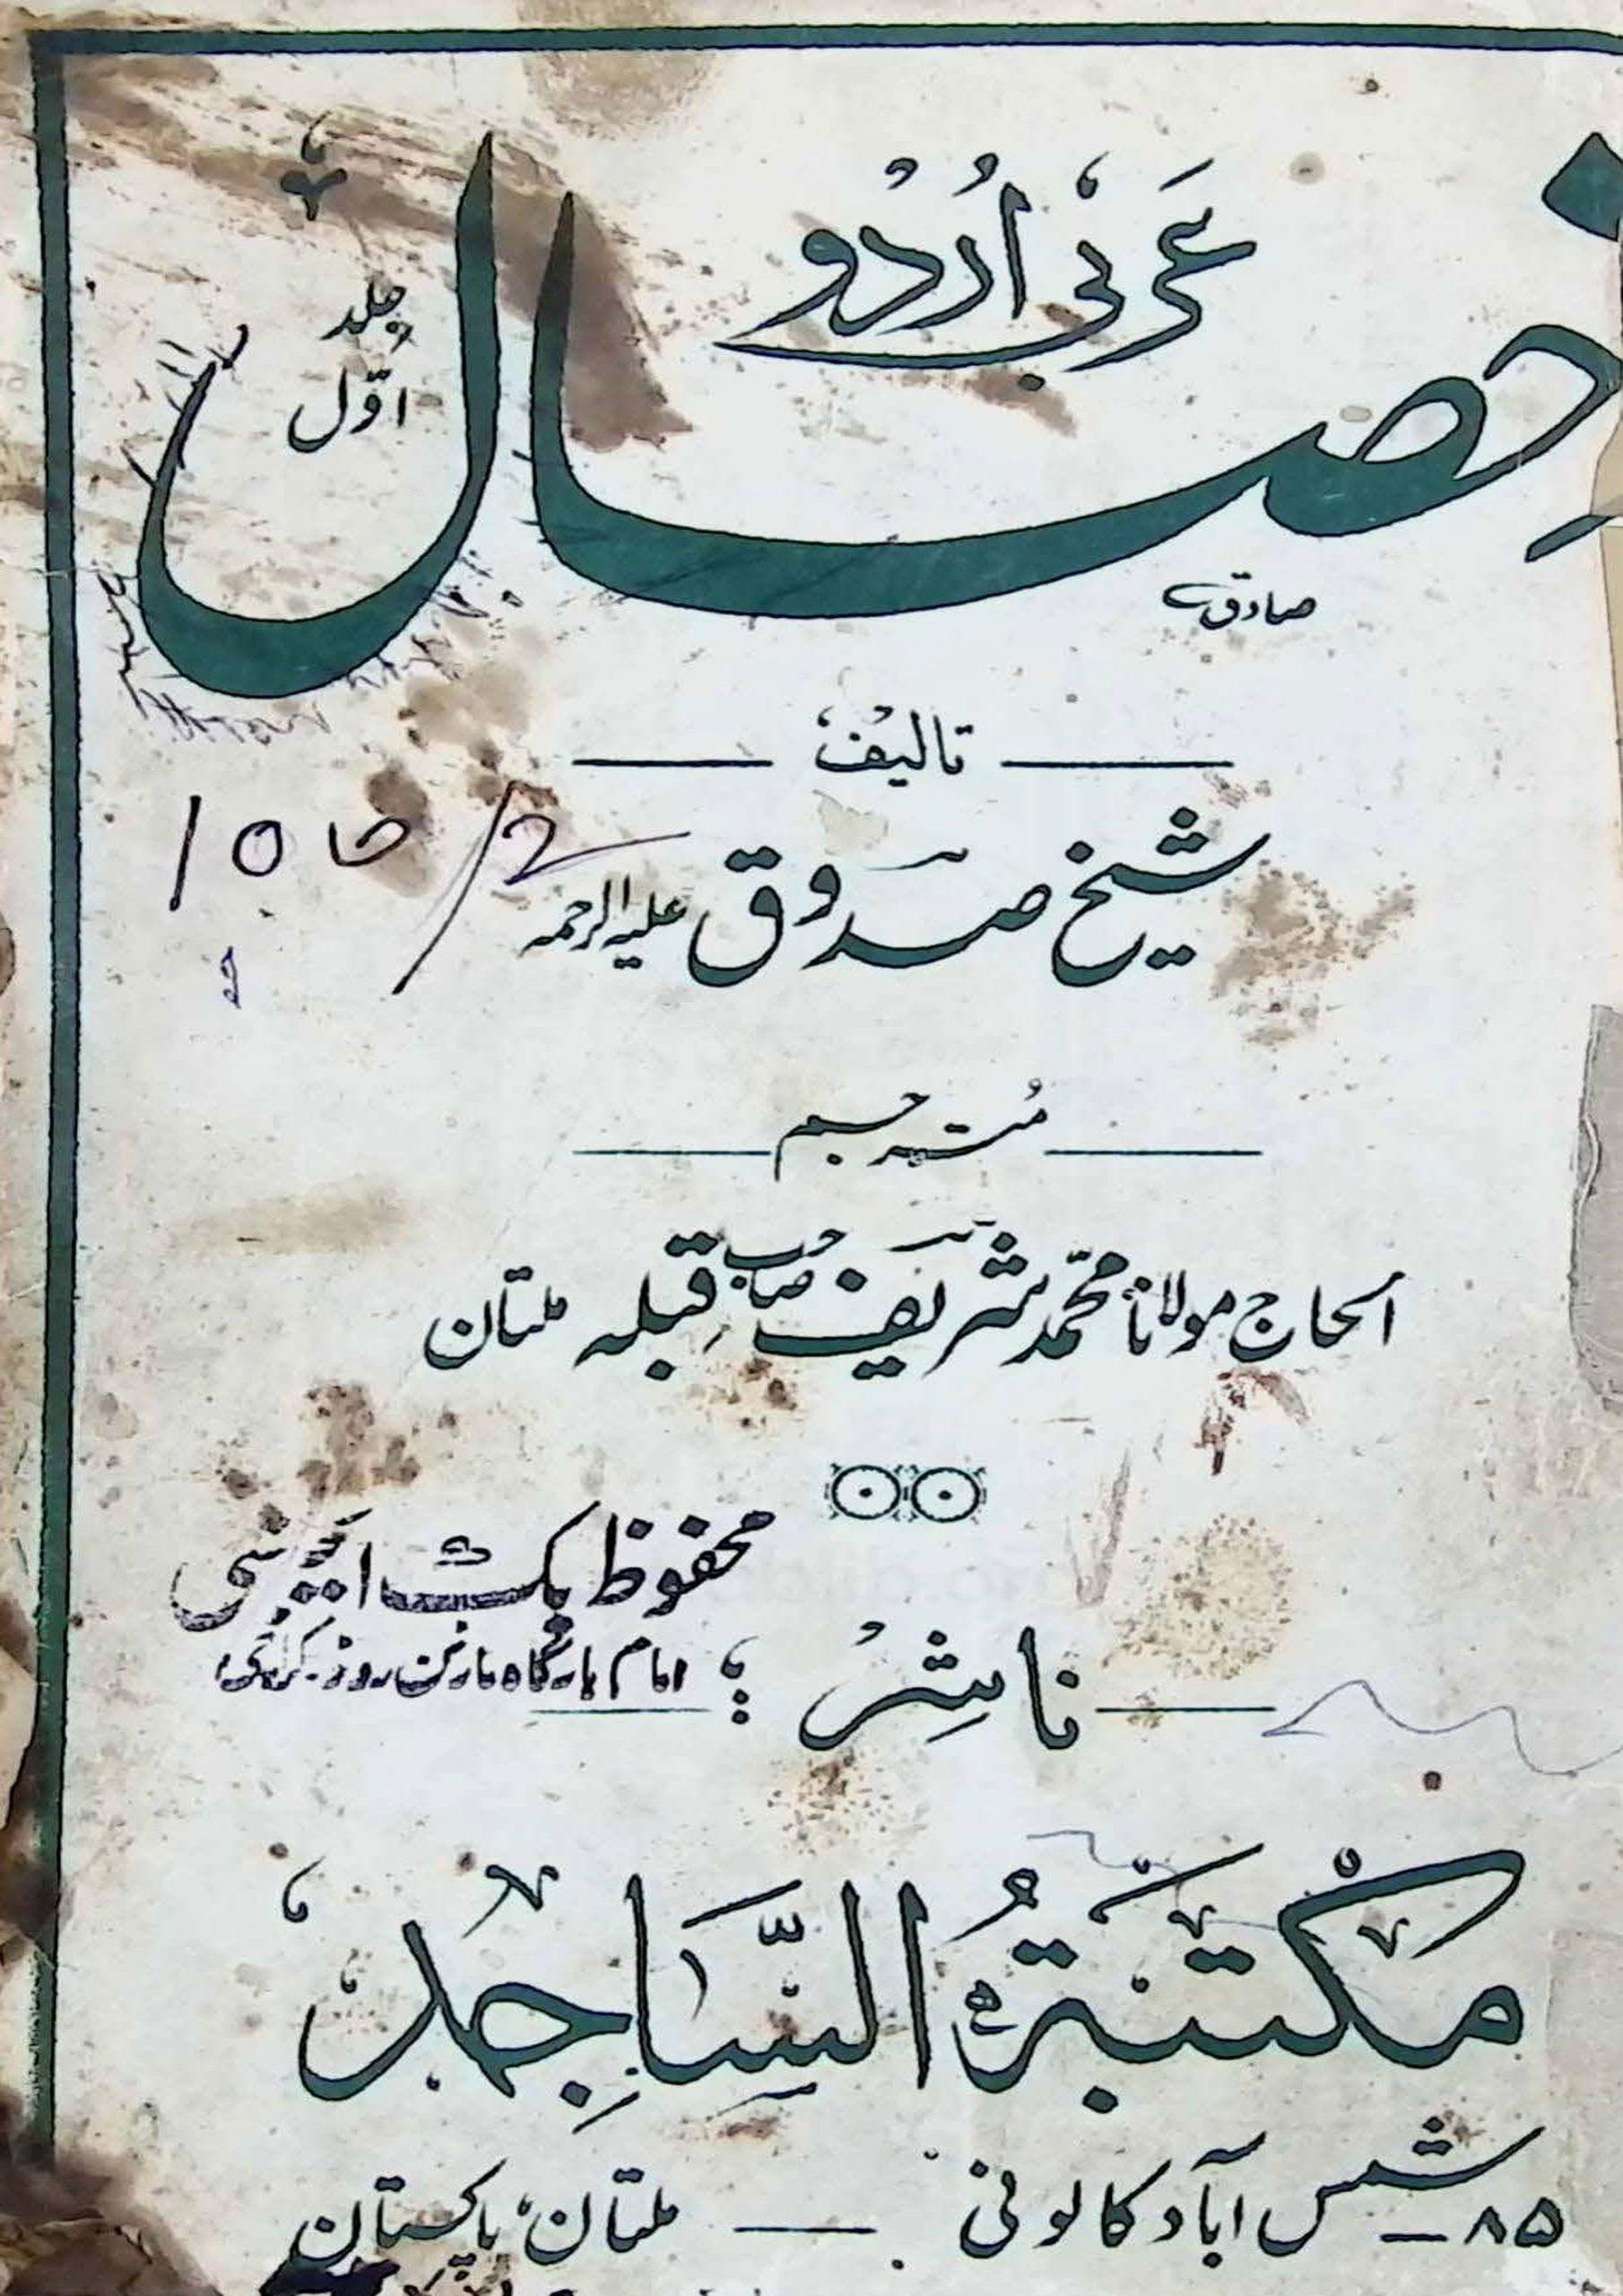 عربی اُردُو
خصال
جلد
اوّل
صادق
تالیف
شیخ صدوق علیہ الرحمہ
مُترجم
الحاج مولانا محمّد شریف صاحب قبلہ ملتان
محفوظ بک ایجنسی
امام بارگاہ مارٹن روڈ. کراچی
ناشِرُ :
مکتبۃُ السَّاجِد
۸۵ - شمس آباد کالونی — ملتان، پاکستان